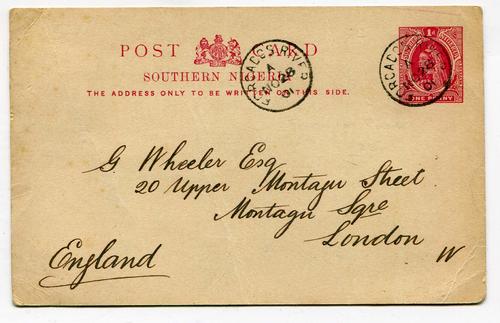 POST CARD
SOUTHERN NIGERIA
THE ADDRESS ONLY TO BE WRITTEN ON THIS SIDE.
FORCADOS RIVER
A
NO 28
01
1d
ONE PENNY
FORCADOS
A
01
G. Wheeler Esq
20 Upper Montagu Street
Montagu Sqre
London
W
England